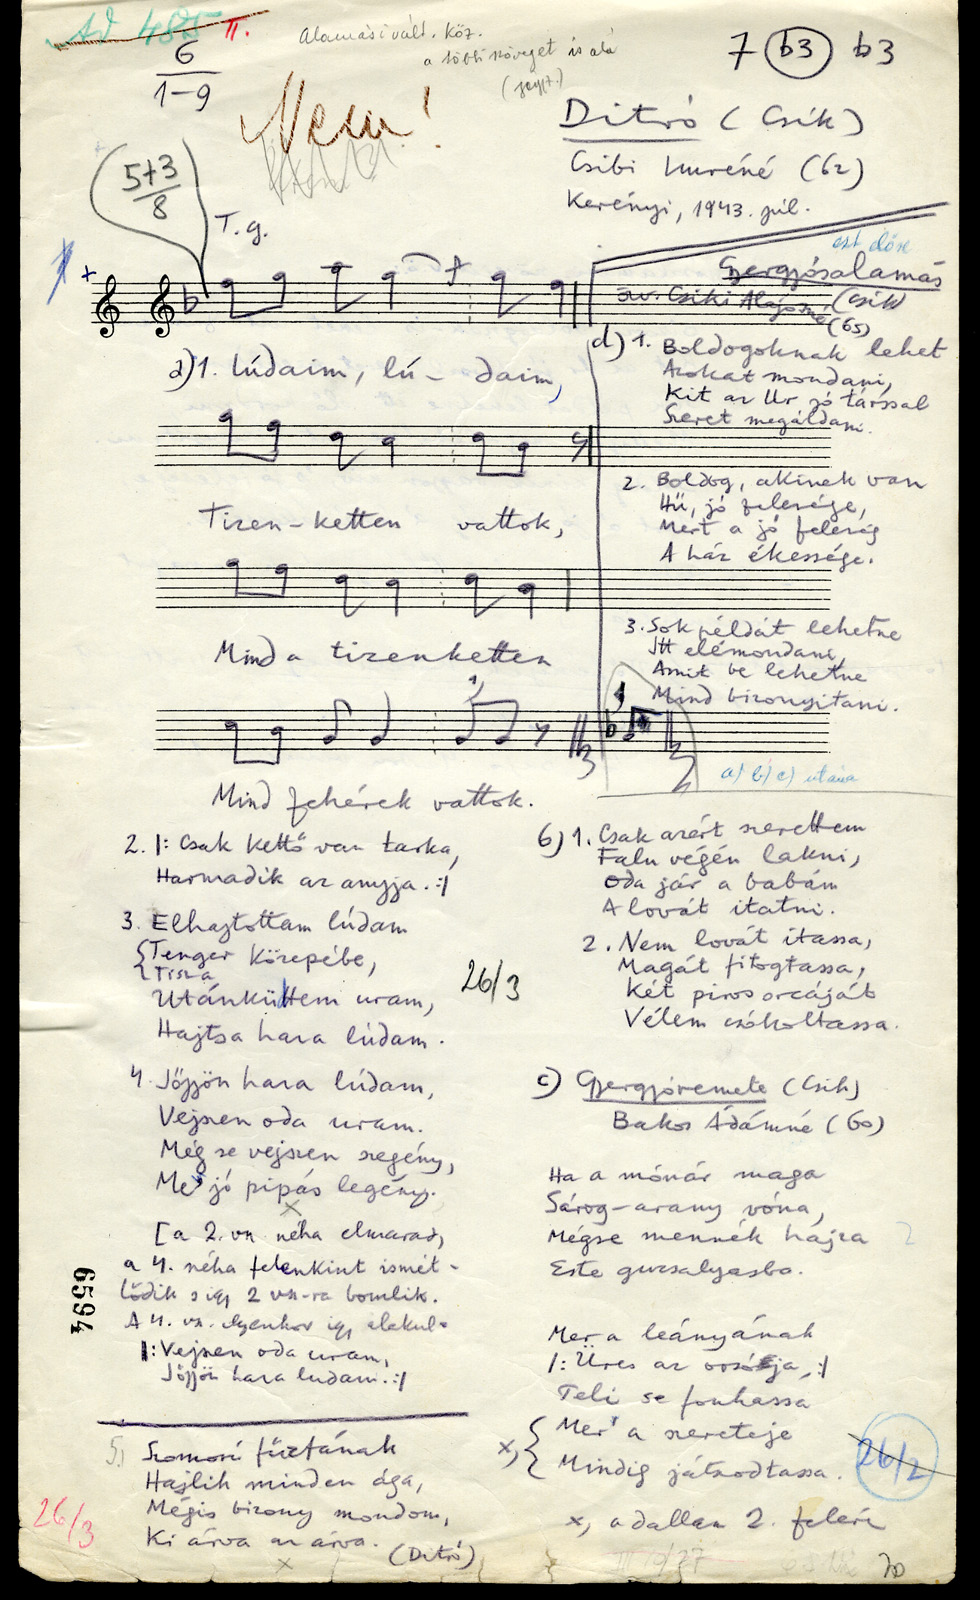 AD 485 II.
6
1-9
Alamási vált. köz.
a többi szöveget is alá
7 b3 b3
Nem!
Ditró (Csík)
Csibi Imréné (62)
Kerényi, 1943. júl.
5+3
8
T. g.
ezt előre
Gyergyósalamás
Csiki Alajosné (Csík)
(65)
a) 1. Lúdaim, lú- daim,
Tizen-ketten vattok,
Mind a tizenketten
Mind fehérek vattok.
d) 1. Boldogoknak lehet
Azokat mondani,
Kit az Ur jó társsal
Szeret megáldani.
2. Boldog, akinek van
Hű, jó felesége,
Mert a jó feleség
A ház ékessége.
3. Sok példát lehetne
Itt elémondani,
Amit be lehetne
Mind bizonyitani.
a) b) c) utána
2. |: Csak kettő van tarka,
Harmadik az anyja. :|
3. Elhajtottam lúdam
Tenger közepébe,
Tisza
Utánküttem uram,
Hajtsa haza lúdam.
26/3
4. Jöjjön haza lúdam,
Vejsen oda uram.
Még se vejszen szegény,
Me' jó pipás legény.
[a 2. vsz néha elmarad,
a 4. néha felenkint ismét-
lődik s így 2 vsz-ra bomlik.
A 4. vsz. ilyenkor így alakul:
|: Vejsen oda uram,
Jöjjön haza ludam. :|
6594
5. Szomorú fűzfának
Hajlik minden ága,
Mégis bizony mondom,
Ki árva az árva.
(Ditró)
26/3
b) 1. Csak azért szerettem
Falu végén lakni,
Oda jár a babám
A lovát itatni.
2. Nem lovát itassa,
Magát fitogtassa,
Két piros orcáját
Vélem csókoltassa.
c) Gyergyóremete (Csík)
Bakos Ádámné (60)
Ha a mónár maga
Sárog-arany vóna,
Mégse mennék hájza
Este guzsalyasba.
Mer a leányának
|: Üres az orsója, :|
Teli se fonhassa
x, Mer' a szereteje
Mindig játszodtassa.
26/2
x, a dallam 2. felére